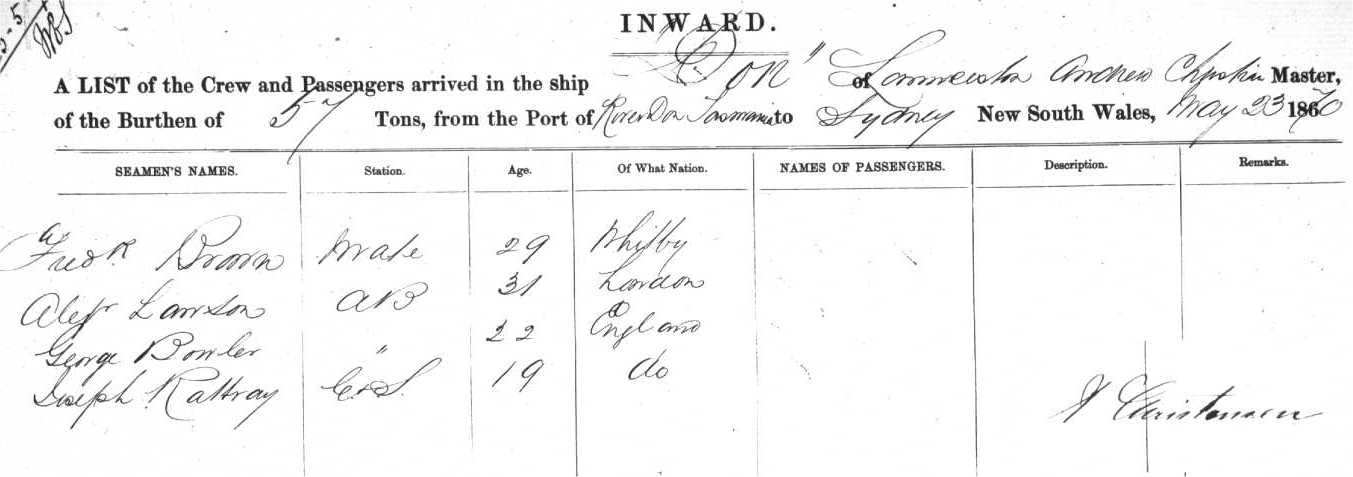 INWARD.
A LIST of the Crew and Passengers arrived in the ship Don" of Launceston Andrew Master,
of the Burthen of 57 Tons, from the Port of River Don Tasmania to Sydney New South Wales, May 23 1870
SEAMEN'S NAMES. Station. Age. Of What Nation. NAMES OF PASSENGERS. Description. Remarks.
Fredk Brown Mate 29 Whitby
Alexr Lawson AB 31 London
George Bowler " 22 England
Joseph Rattray C&S. 19 do
Christensen